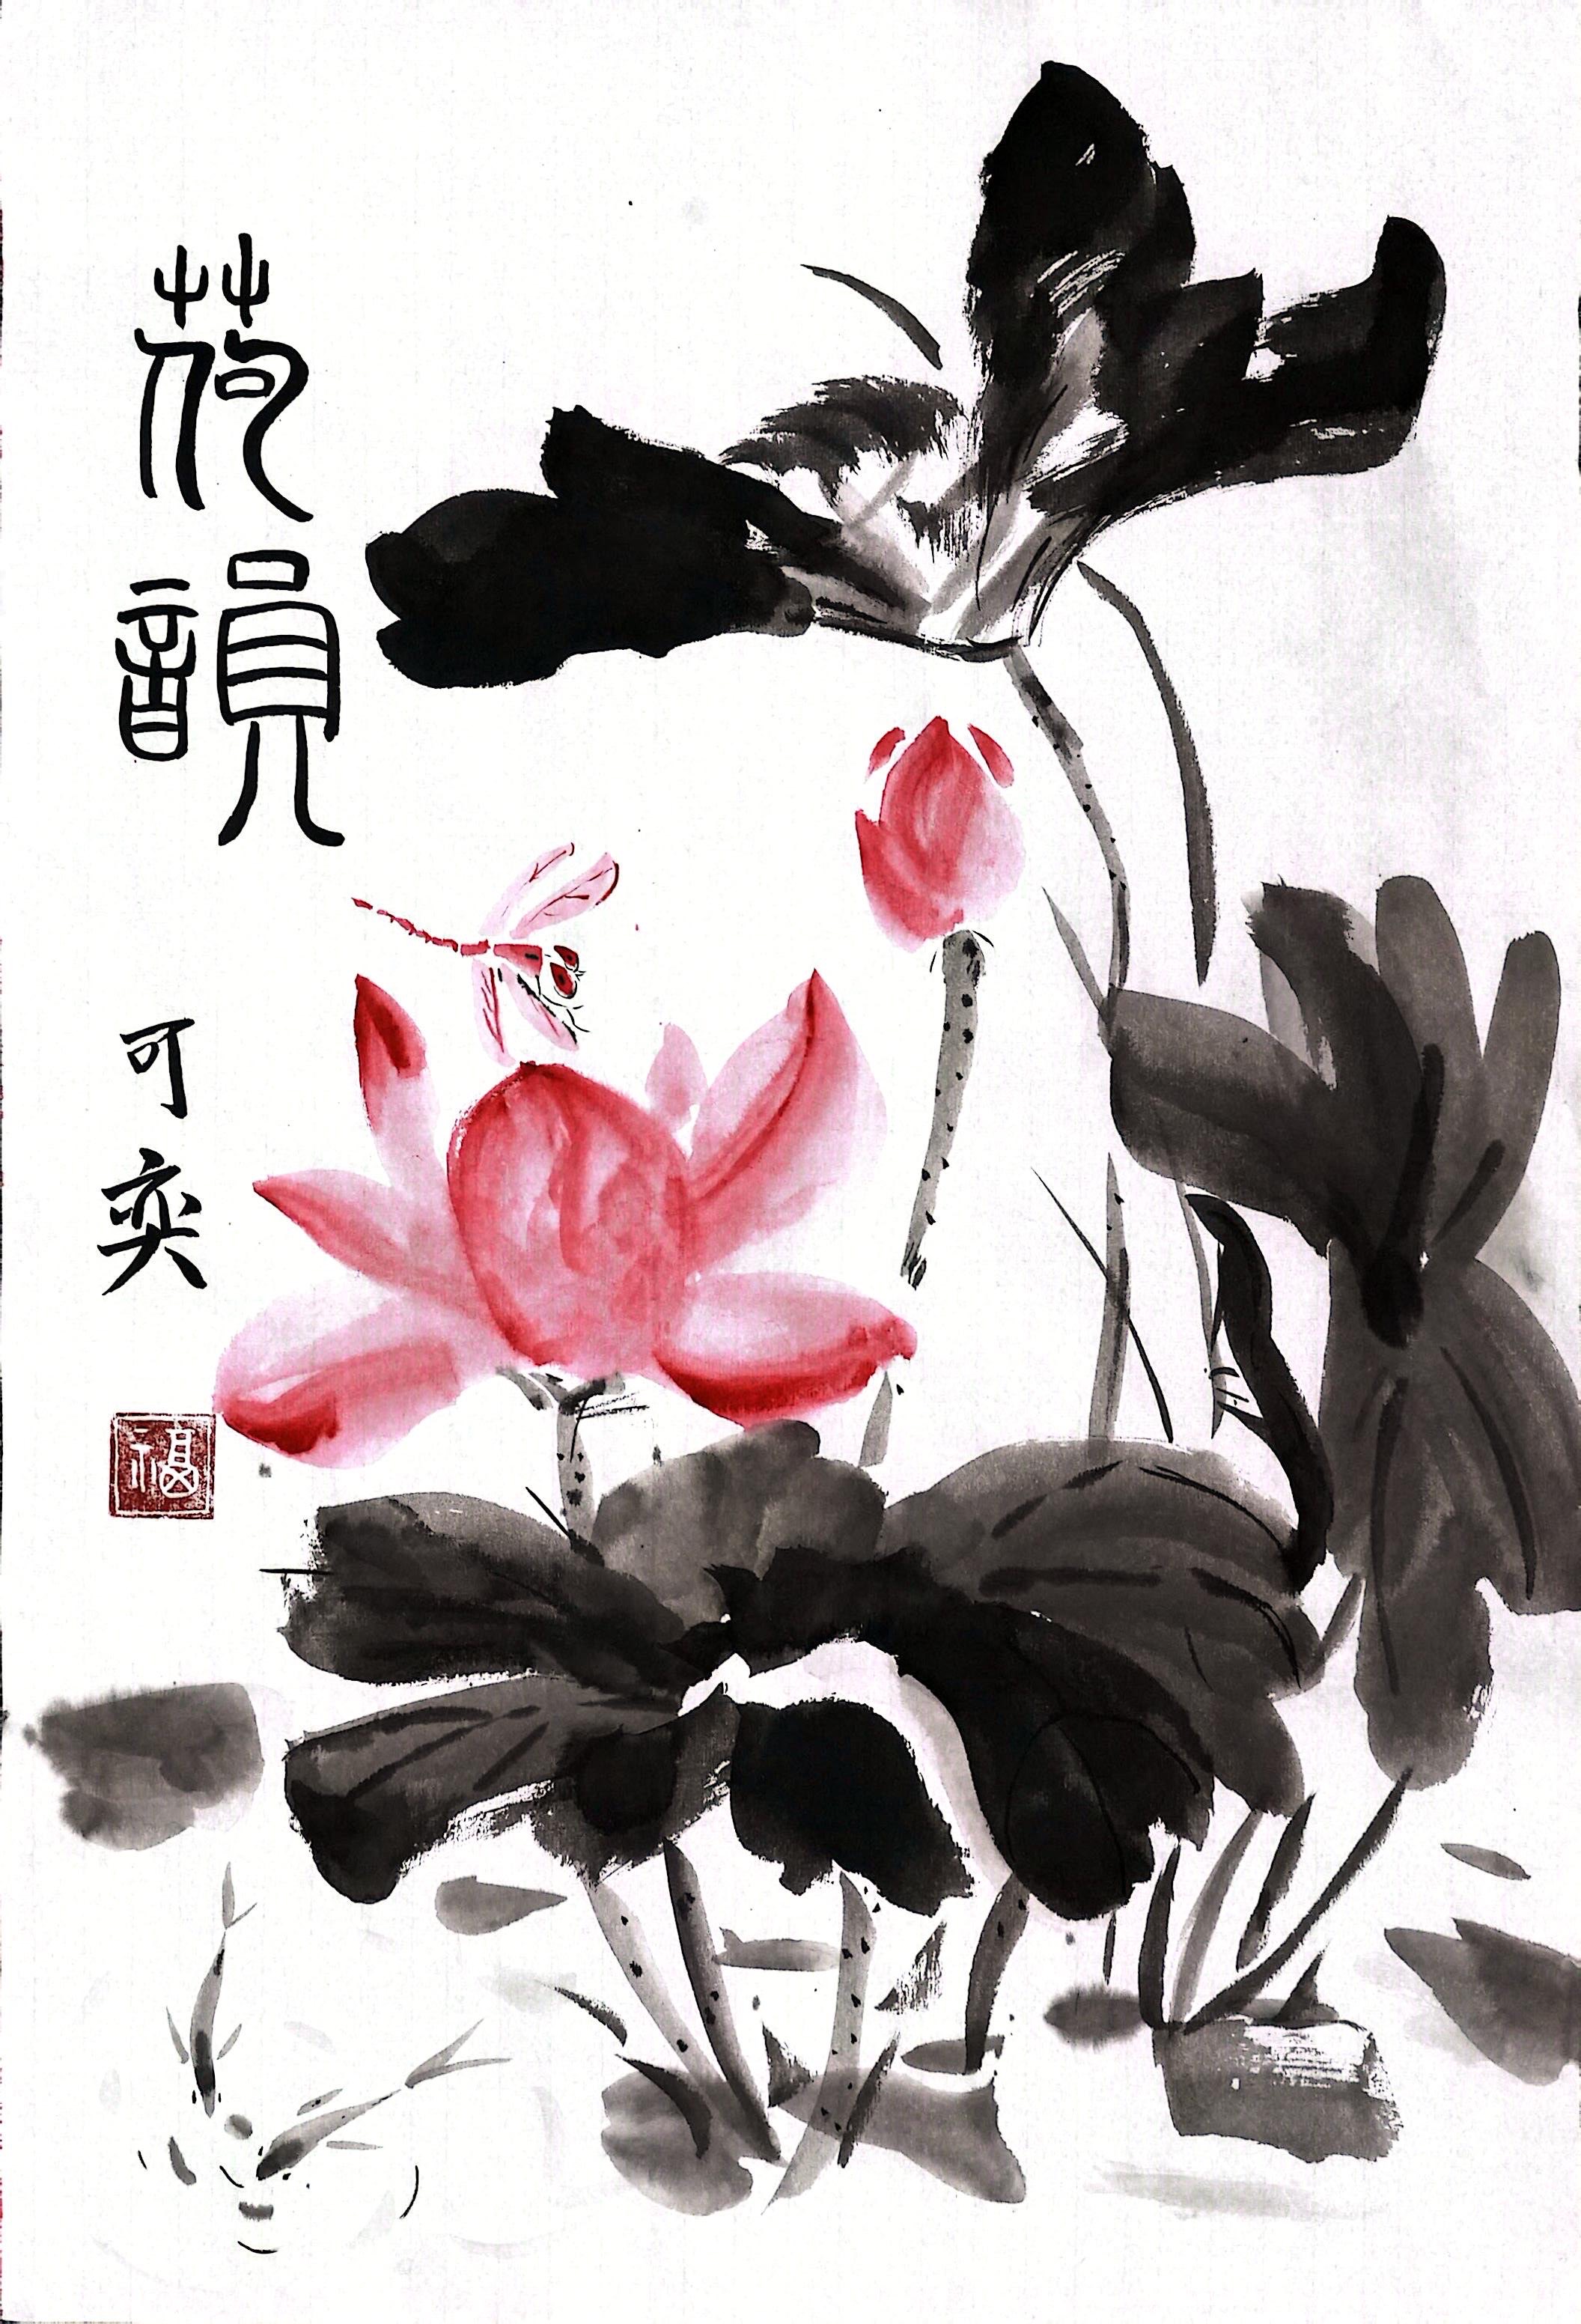 荷韻
可奕
福